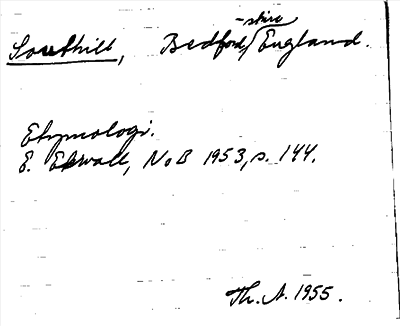 Southill, Bedford-shire England.
Etymologi.
E. Ekwall, NoB 1953, s. 144.
Th. A. 1955.